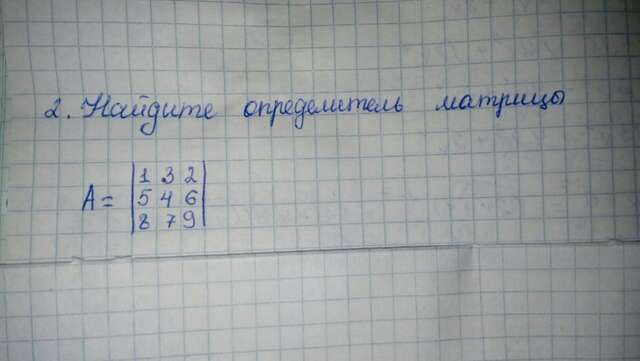 2. Найдите определитель матрицы
1 3 2
A= 5 4 6
8 7 9